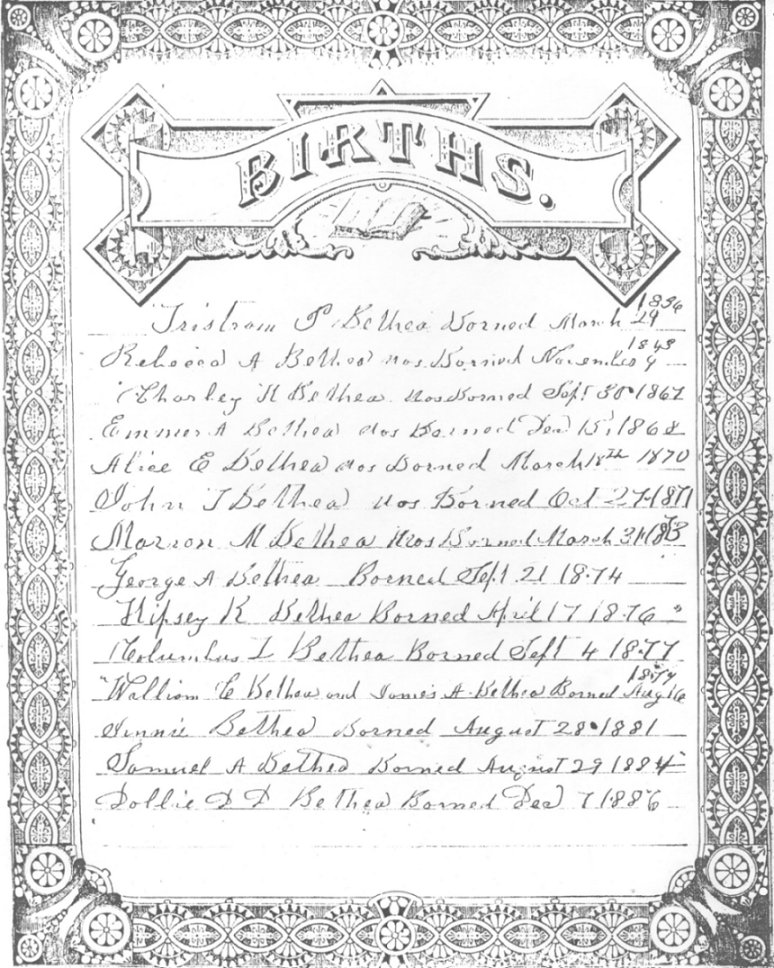 BIRTHS.
Tristram P Bethea Borned March 29 1836
Rebecca A Bethea was Borned November 9 1843
Charley H Bethea was Borned Sept 30 1867
Emmer A Bethea was Borned Dec 15, 1868
Alice E Bethea was Borned March 18th 1870
John T Bethea was Borned Oct 27 1871
Marion M Bethea was Borned March 31 1873
George A Bethea Borned Sept 21 1874
Hipsey K Bethea Borned April 17 1876
Columbus L Bethea Borned Sept 4 1877
William C Bethea and James A Bethea Borned Aug 16 1879
Bethea Borned August 28 1881
Samuel A Bethea Borned August 29 1884
Dollie D D Bethea Borned Dec 7 1886